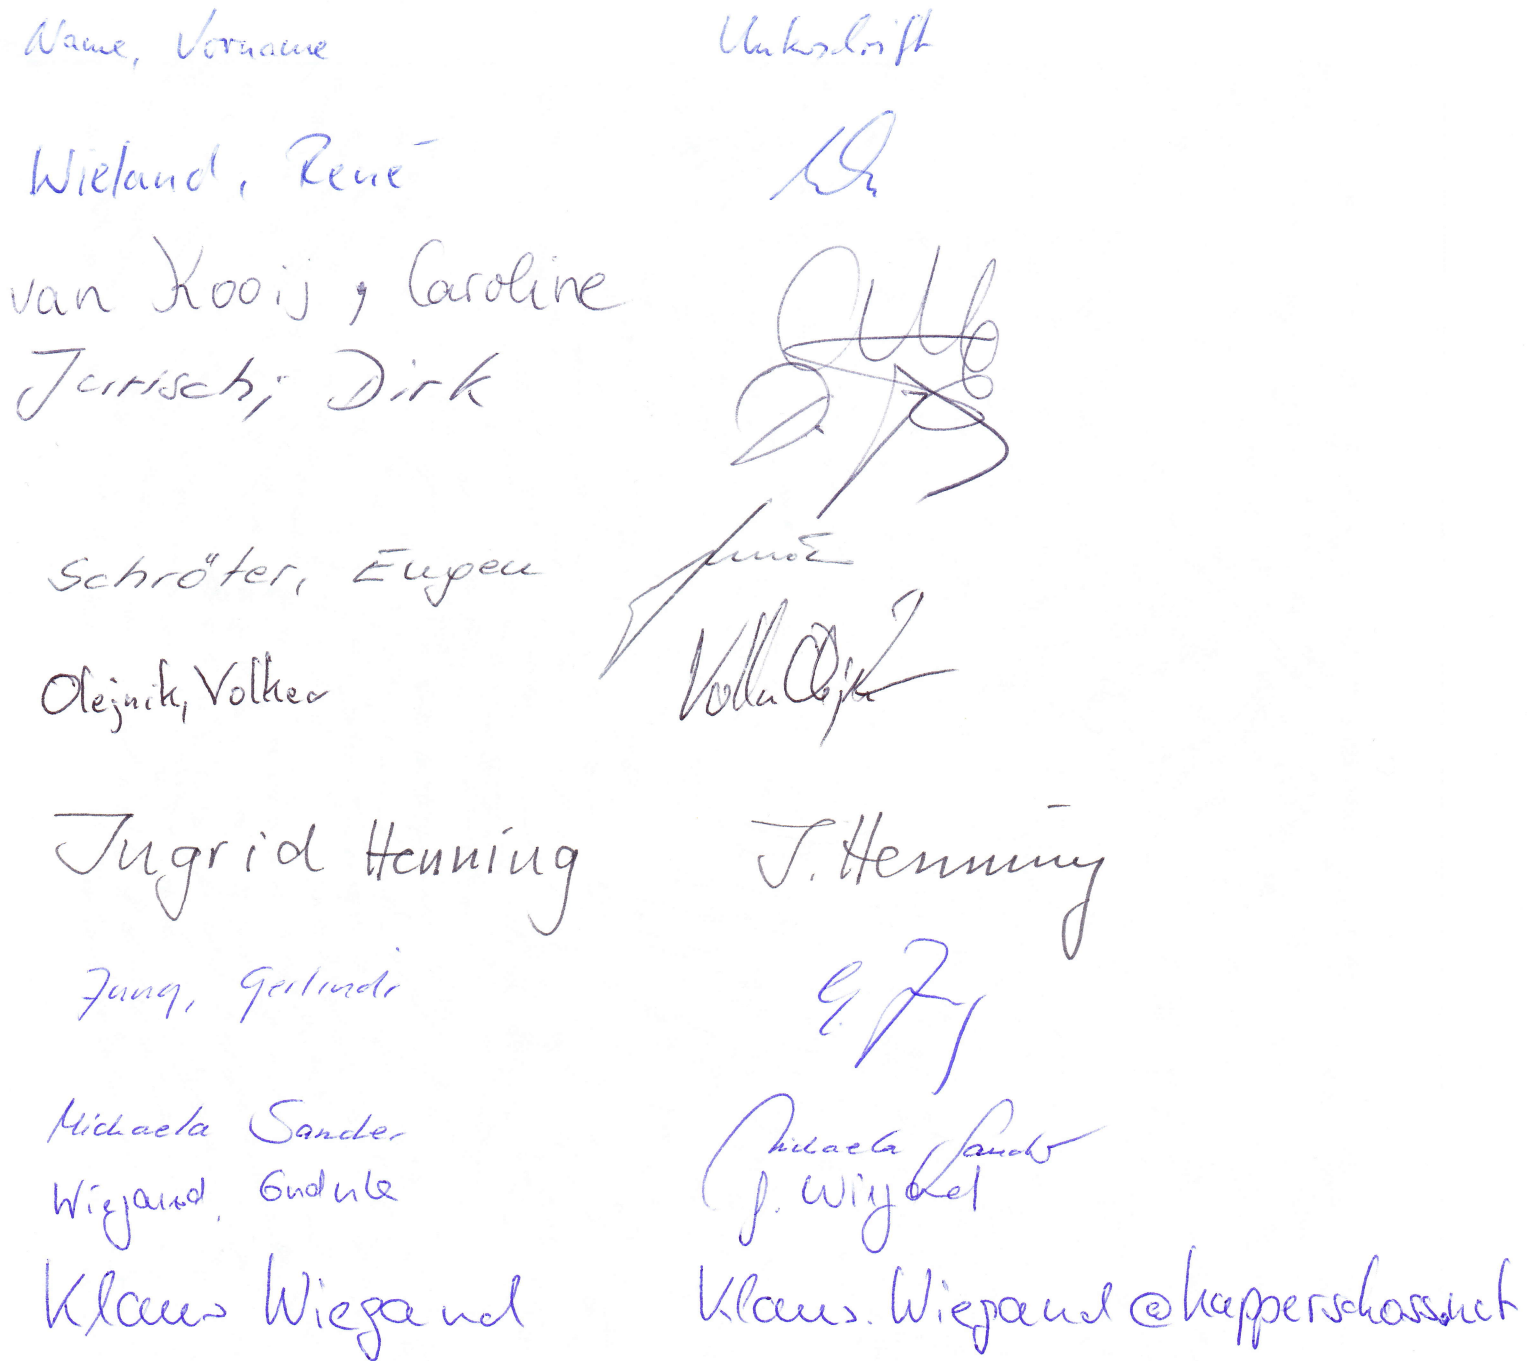 Name, Vorname Unterschrift
Wieland, René
van Kooij, Caroline
Jarrisch, Dirk
Schröter, Eugen
Olejnik, Volker Volker Olejnik
Ingrid Henning I. Henning
Jung, Gerlinde G. Jung
Michaela Sander Michaela Sander
Wiegand, Gudula G. Wiegand
Klaus Wiegand Klaus.Wiegand@